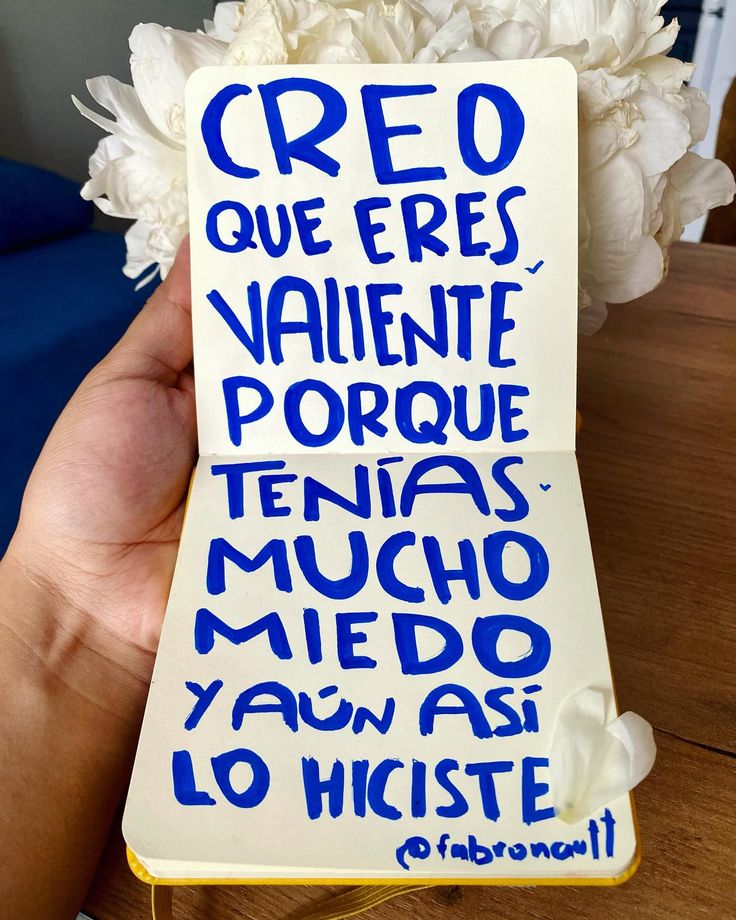 CREO
QUE ERES
VALIENTE
PORQUE
TENÍAS
MUCHO
MIEDO
Y AÚN ASÍ
LO HICISTE
@fabronautt